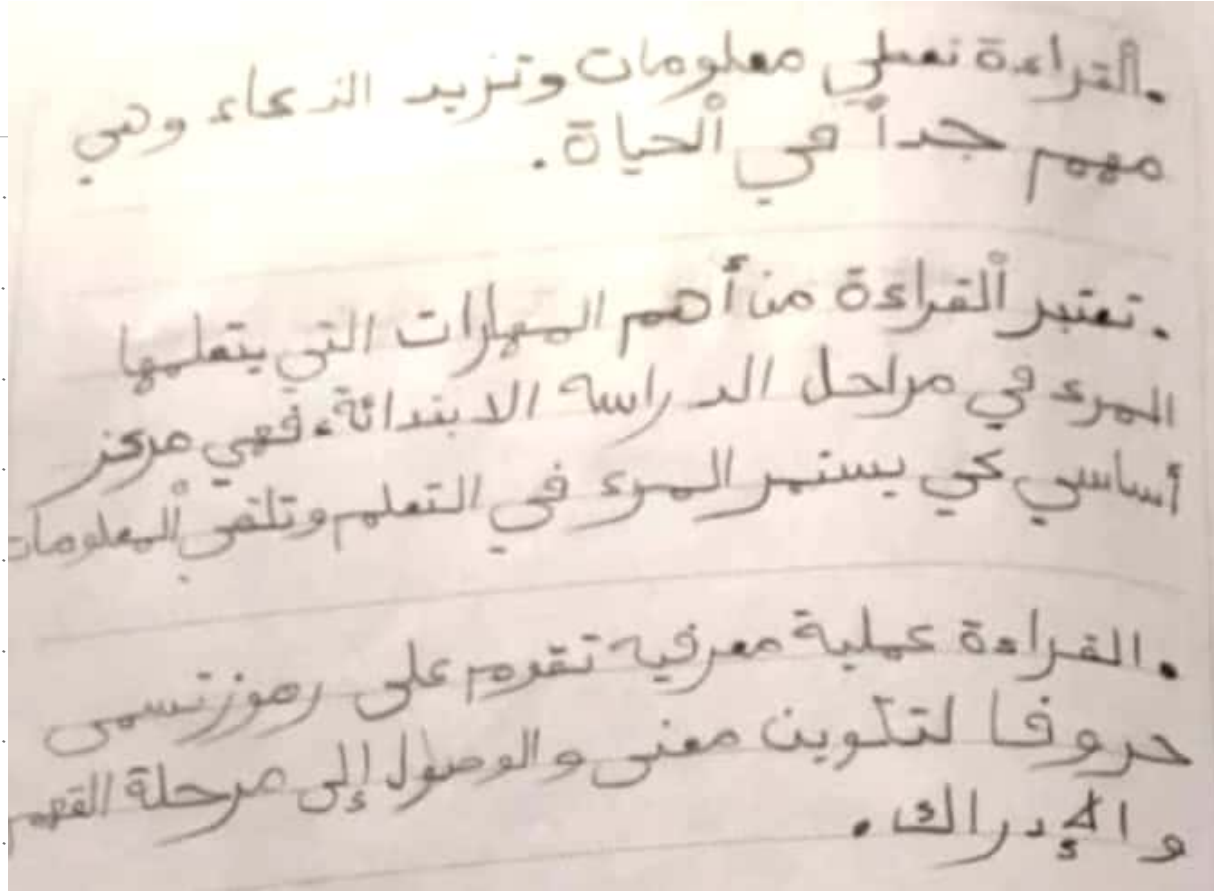 .القراءة تعطي معلومات وتزيد الذكاء وهي
مهم جداً في الحياة.
.تعتبر القراءة من أهم المهارات التي يتعلمها
المرء في مراحل الدراسة الابتدائة، فهي مركز
أساسي كي يستمر المرء في التعلم وتلقي المعلومات
.القراءة عملية معرفيه تقوم على رموز تسمى
حروفا لتكوين معنى والوصول إلى مرحلة الفهم
والإدراك.